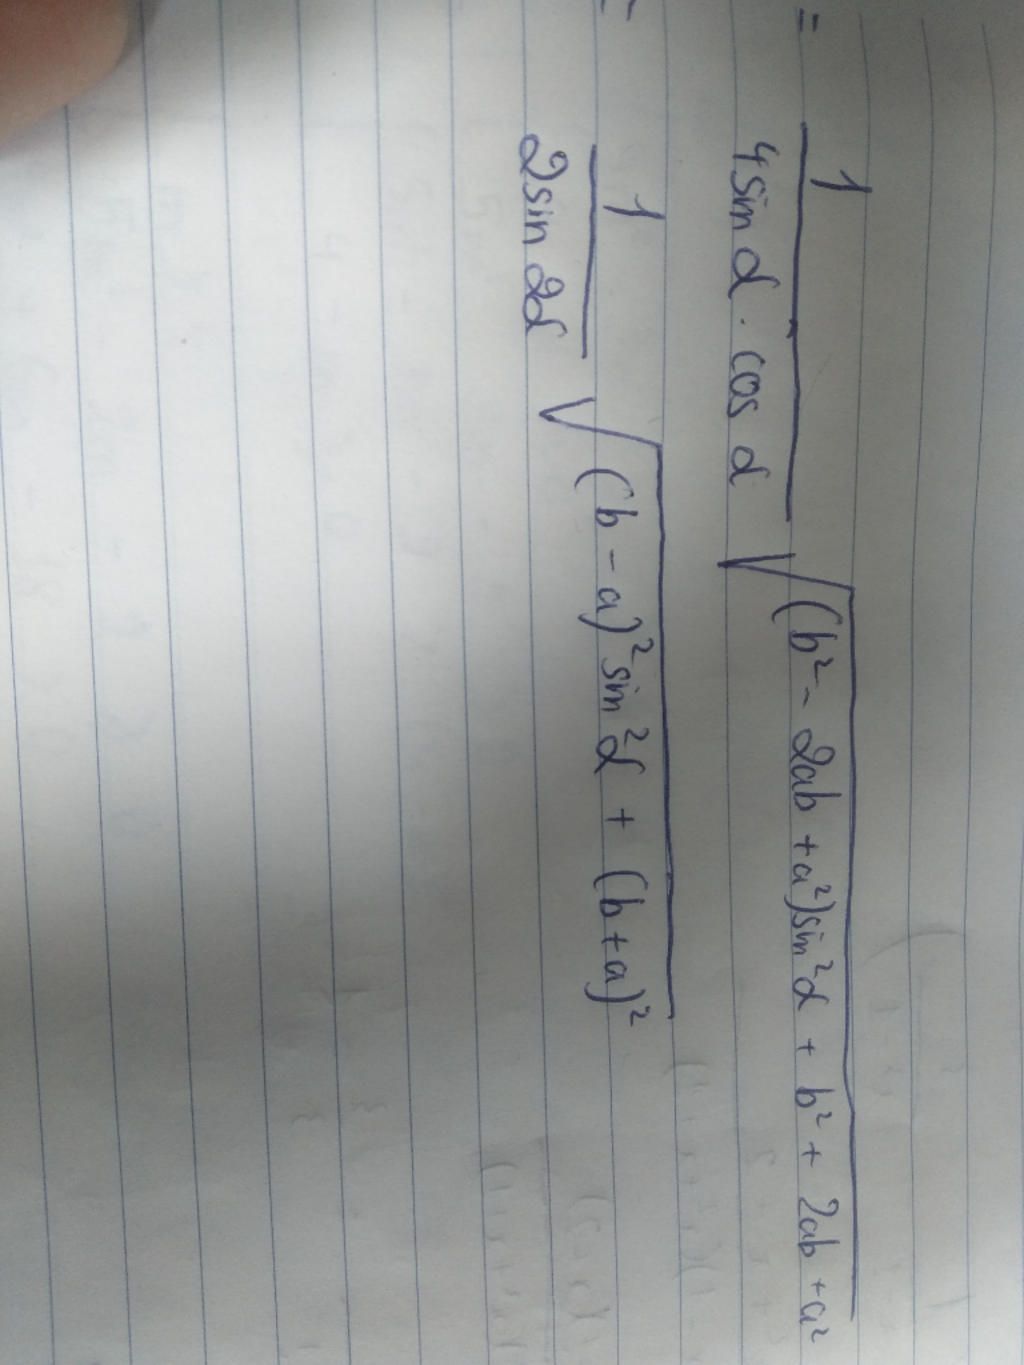 = 1/(4sin α · cos α) √((b² - 2ab + a²)sin²α + b² + 2ab + a²)
= 1/(2sin 2α) √((b - a)² sin²α + (b + a)²)